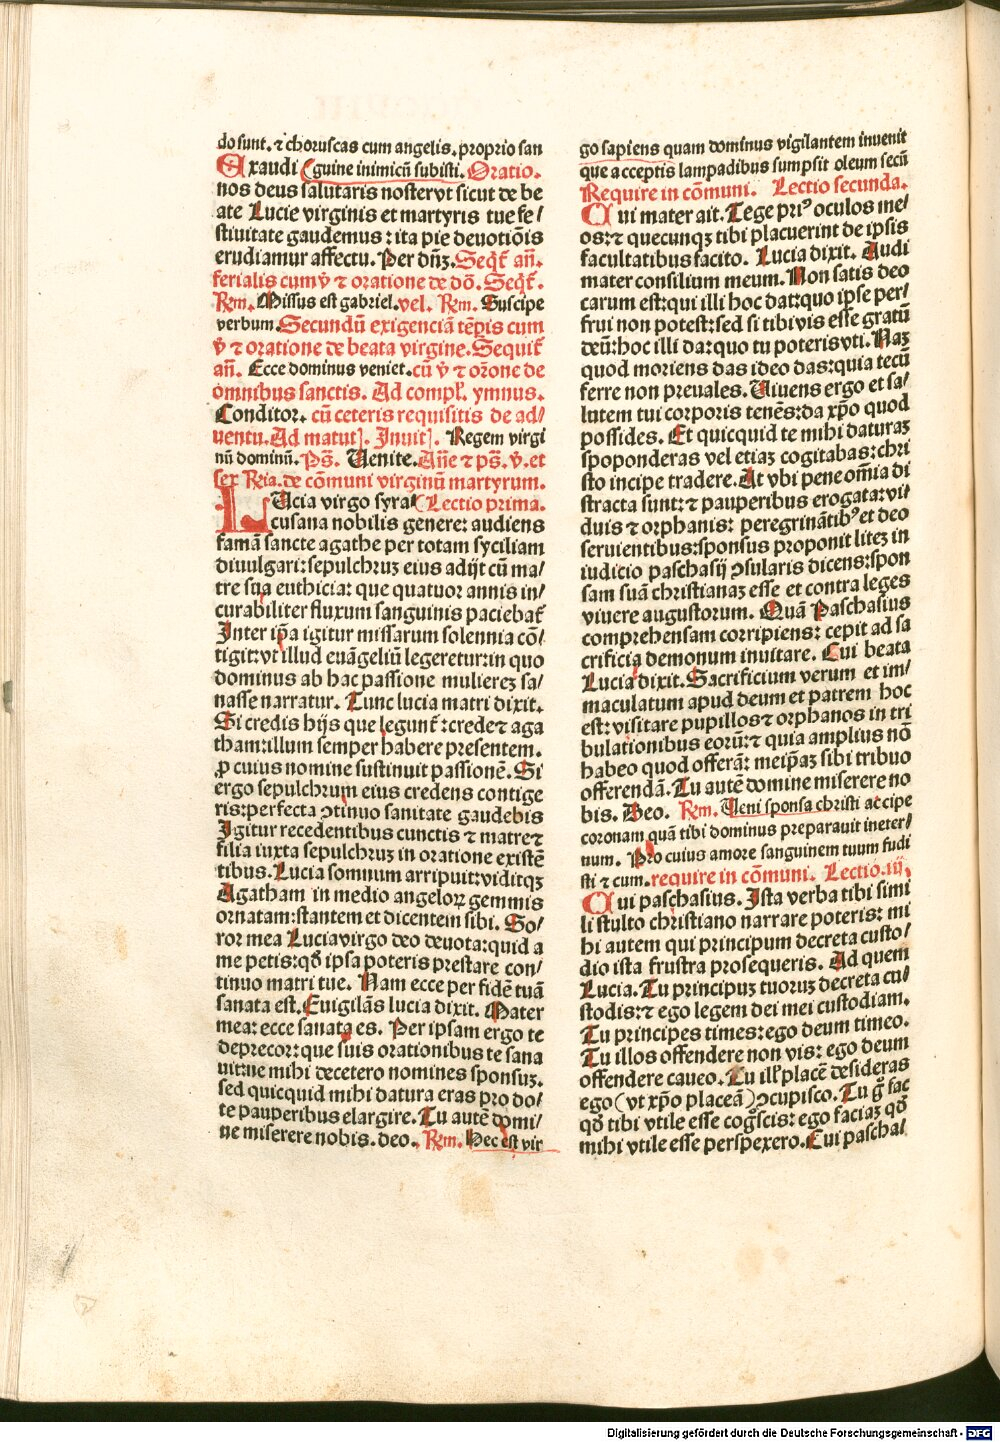 do sunt. ⁊ choruscas cum angelis. proprio san
Exaudi (guine inimicū subisti. Oratio.
nos deus salutaris noster vt sicut de be
ate Lucie virginis et martyris tue fe/
stiuitate gaudemus : ita pie deuotiōis
erudiamur affectu. Per dn̄ꝫ. Seqt̄ an̄.
ferialis cum v̄ ⁊ oratione de dō. Seqt̄.
Rm̄. Missus est gabriel. vel. Rm̄. Suscipe
verbum. Secundū exigenciā tēpis cum
v̄ ⁊ oratione de beata virgine. Sequit̄
an̄. Ecce dominus veniet. cū v̄ ⁊ orōne de
omnibus sanctis. Ad compl̄. ymnus.
Conditor. cū ceteris requisitis de ad/
uentu. Ad matut]. Inuit]. Regem virgi
nū dominū. Ps̄. Uenite. An̄e ⁊ ps̄. v̄. et
sex Rr̄ia. de cōmuni virginū martyrum.
LUcia virgo syra (Lectio prima.
cusana nobilis genere: audiens
famā sancte agathe per totam syciliam
diuulgari: sepulchruꝫ eius adijt cū ma/
tre sua euthicia: que quatuor annis in/
curabiliter fluxum sanguinis paciebat̄
Inter ip̄a igitur missarum solennia cō/
tigit: vt illud euāgeliū legeretur: in quo
dominus ab hac passione muliereꝫ sa/
nasse narratur. Tunc lucia matri dixit.
Si credis hijs que legunt̄ : crede ⁊ aga
tham: illum semper habere presentem.
ꝓ cuius nomine sustinuit passionē. Si
ergo sepulchrum eius credens contige
ris: perfecta ↄtinuo sanitate gaudebis
Igitur recedentibus cunctis ⁊ matre ⁊
filia iuxta sepulchruꝫ in oratione existē
tibus. Lucia somnum arripuit: viditqꝫ
Agatham in medio angeloꝝ gemmis
ornatam: stantem et dicentem sibi. So/
ror mea Lucia virgo deo deuota: quid a
me petis: qð ipsa poteris prestare con/
tinuo matri tue. Nam ecce per fidē tuā
sanata est. Euigilās lucia dixit. Mater
mea: ecce sanata es. Per ipsam ergo te
deprecor: que suis orationibus te sana
uit: ne mihi decetero nomines sponsuꝫ.
sed quicquid mihi datura eras pro do/
te pauperibus elargire. Tu autē domi/
ne miserere nobis. deo. Rm̄. Hec est vir
go sapiens quam dominus vigilantem inuenit
que acceptis lampadibus sumpsit oleum secū
Require in cōmuni. Lectio secunda.
Cui mater ait. Tege priꝰ oculos me/
os: ⁊ quecunqꝫ tibi placuerint de ipsis
facultatibus facito. Lucia dixit. Audi
mater consilium meum. Non satis deo
carum est: qui illi hoc dat: quo ipse per/
frui non potest: sed si tibi vis esse gratū
deū: hoc illi da: quo tu poteris vti. Naꝫ
quod moriens das ideo das: quia tecū
ferre non preuales. Uiuens ergo et sa/
lutem tui corporis tenēs: da xp̄o quod
possides. Et quicquid te mihi daturaꝫ
spoponderas vel etiaꝫ cogitabas: chri
sto incipe tradere. At vbi pene omīa di
stracta sunt: ⁊ pauperibus erogata: vi/
duis ⁊ orphanis: peregrināti bꝰ et deo
seruientibus: sponsus proponit liteꝫ in
iudicio paschasij ↄsularis dicens: spon
sam suā christianaꝫ esse et contra leges
viuere augustorum. Quā Paschasius
comprehensam corripiens: cepit ad sa
crificia demonum inuitare. Cui beata
Lucia dixit. Sacrificium verum et im/
maculatum apud deum et patrem hoc
est: visitare pupillos ⁊ orphanos in tri
bulationibus eorū: ⁊ quia amplius nō
habeo quod offerā: meip̄aꝫ sibi tribuo
offerendā. Tu autē domine miserere no
bis. Deo. Rm̄. Ueni sponsa christi accipe
coronam quā tibi dominus preparauit in eter/
num. Pro cuius amore sanguinem tuum fudi
sti ⁊ cum. require in cōmuni. Lectio. iij.
Cui paschasius. Ista verba tibi simi
li stulto christiano narrare poteris: mi
hi autem qui principum decreta custo/
dio ista frustra prosequeris. Ad quem
Lucia. Tu principuꝫ tuoruꝫ decreta cu/
stodis: ⁊ ego legem dei mei custodiam.
Tu principes times: ego deum timeo.
Tu illos offendere non vis: ego deum
offendere caueo. Tu ill' placē desideras
ego (vt xp̄o placeā) ↄcupisco. Tu g̊ fac
qð tibi vtile esse cog̊scis: ego faciaꝫ qð
mihi vtile esse perspexero. Cui pascha/
Digitalisierung gefördert durch die Deutsche Forschungsgemeinschaft - DFG